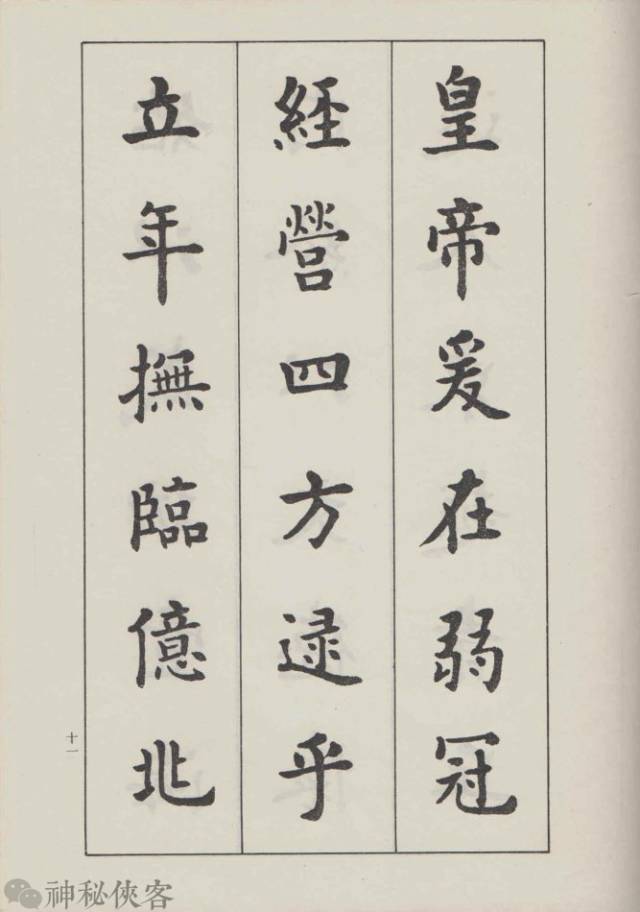 皇帝爰在弱冠
經營四方逮乎
立年撫臨億兆
十一
神秘俠客